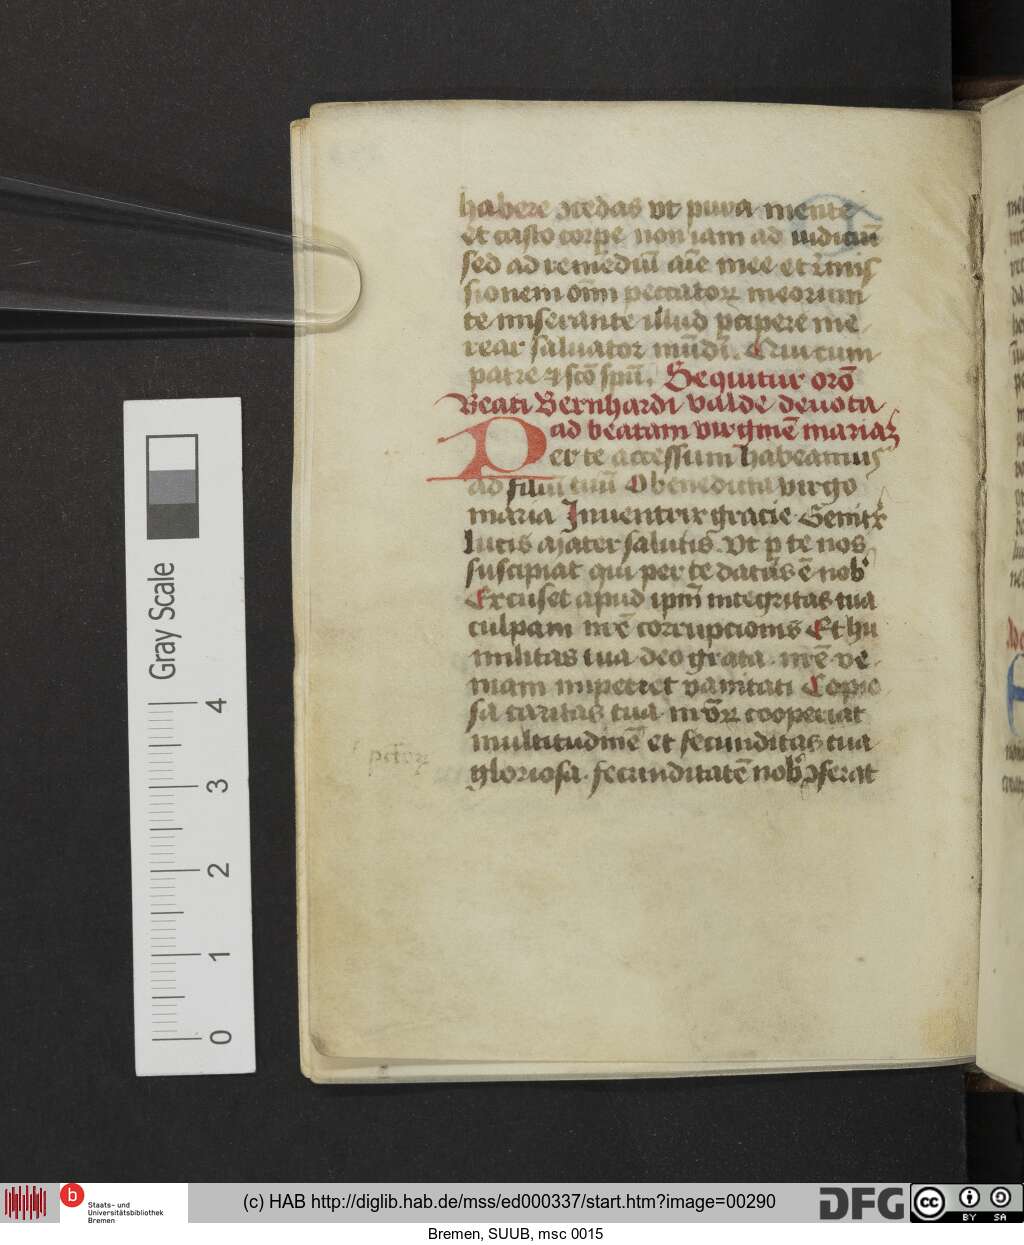 habere ↄcedas vt pura mente
et casto corpe non iam ad iudiciū
sed ad remediū aīe mee et remis
sionem oīm peccatoꝝ meorum
te miserante illud ꝑcipere me
rear saluator mūdi. Qui cum
patre ⁊ scō spū. Sequitur orō
Beati Bernhardi valde deuota
ad beatam virginē mariaȝ
Per te accessum habeamus
ad filiū tuū O benedicta virgo
maria Inuentrix gracie Genitͥx
Mater salutis. Vt ꝑ te nos
suscipiat qui per te datus ē nobꝰ
Excuset apud ipm̄ integritas tua
culpam nr̄e corrupcionis Et hu
militas tua deo grata nr̄e ve
niam impetret vanitati Copio
sa caritas tua nr̄oꝝ cooperiat
pctōꝝ
multitudinē et fecunditas tua
gloriosa fecunditatē nobꝰ ↄferat
Gray Scale
4
3
2
1
0
b
Staats- und
Universitätsbibliothek
Bremen
(c) HAB http://diglib.hab.de/mss/ed000337/start.htm?image=00290
DFG
cc BY SA
Bremen, SUUB, msc 0015